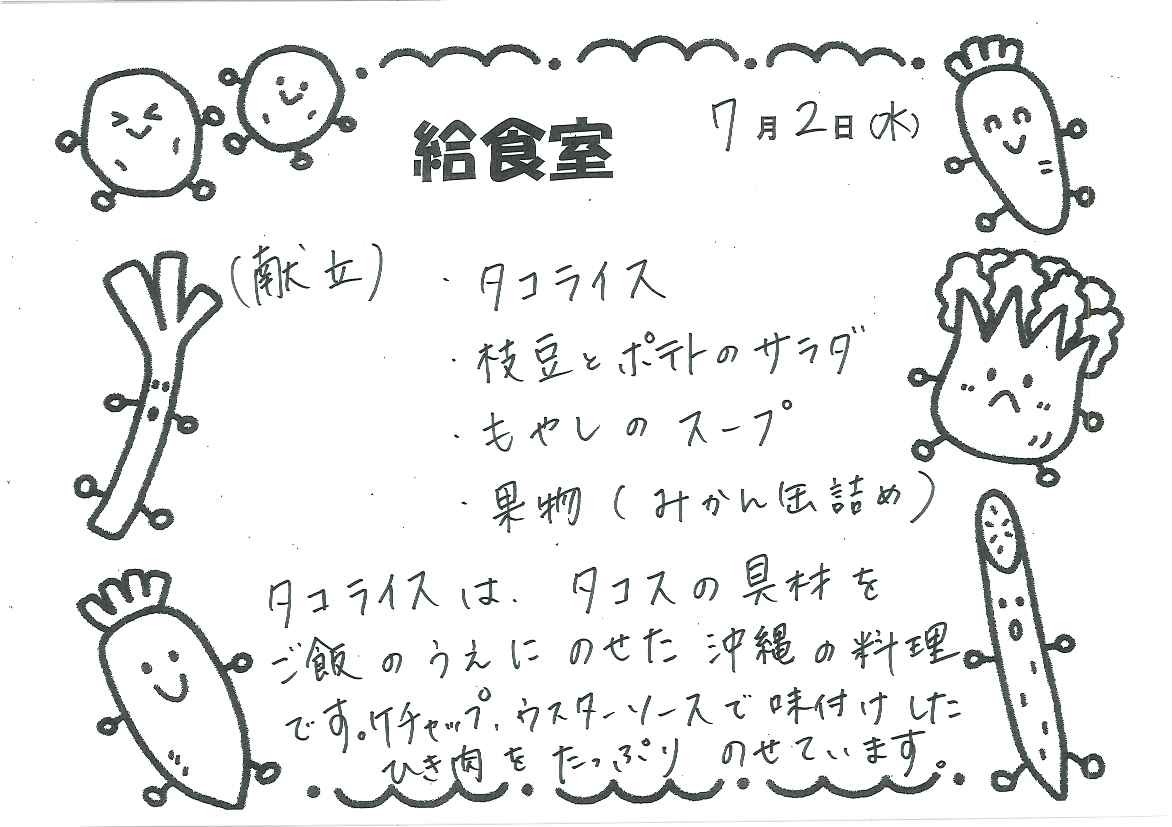 給食室
7月2日(水)
(献立)
・タコライス
・枝豆とポテトのサラダ
・もやしのスープ
・果物(みかん缶詰め)
タコライスは、タコスの具材を
ご飯のうえにのせた沖縄の料理
です。ケチャップ、ウスターソースで味付けした
ひき肉をたっぷりのせています。